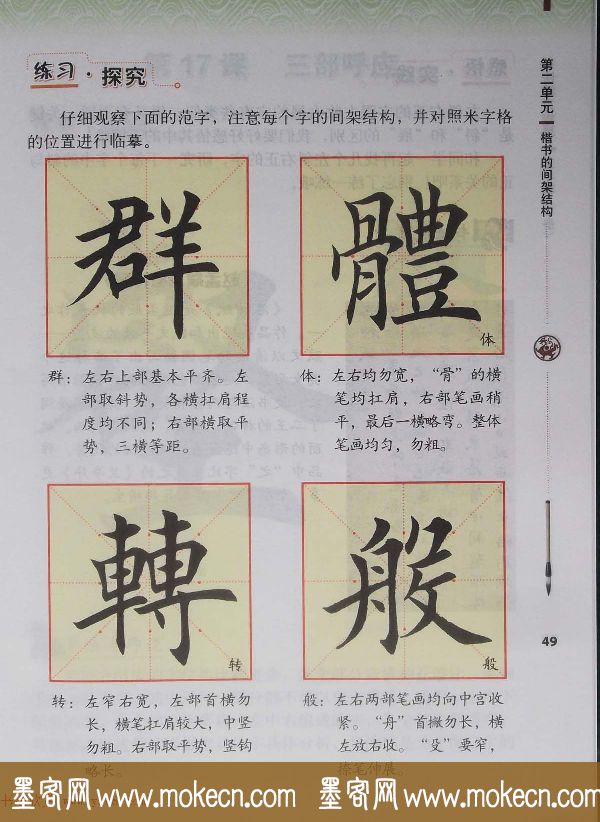 练习·探究
仔细观察下面的范字，注意每个字的间架结构，并对照米字格
的位置进行临摹。
群
體
体
群：左右上部基本平齐。左
部取斜势，各横扛肩程
度均不同；右部横取平
势，三横等距。
体：左右均勿宽，“骨”的横
笔均扛肩，右部笔画稍
平，最后一横略弯。整体
笔画均匀，勿粗。
轉
转
般
般
转：左窄右宽，左部首横勿
长，横笔扛肩较大，中竖
勿粗。右部取平势，竖钩
略长。
般：左右两部笔画均向中宫收
紧。“舟”首撇勿长，横
左放右收。“殳”要窄，
捺笔伸展。
第二单元
楷书的间架结构
49
墨客网 www.mokecn.com 墨客网 www.mokecn.com